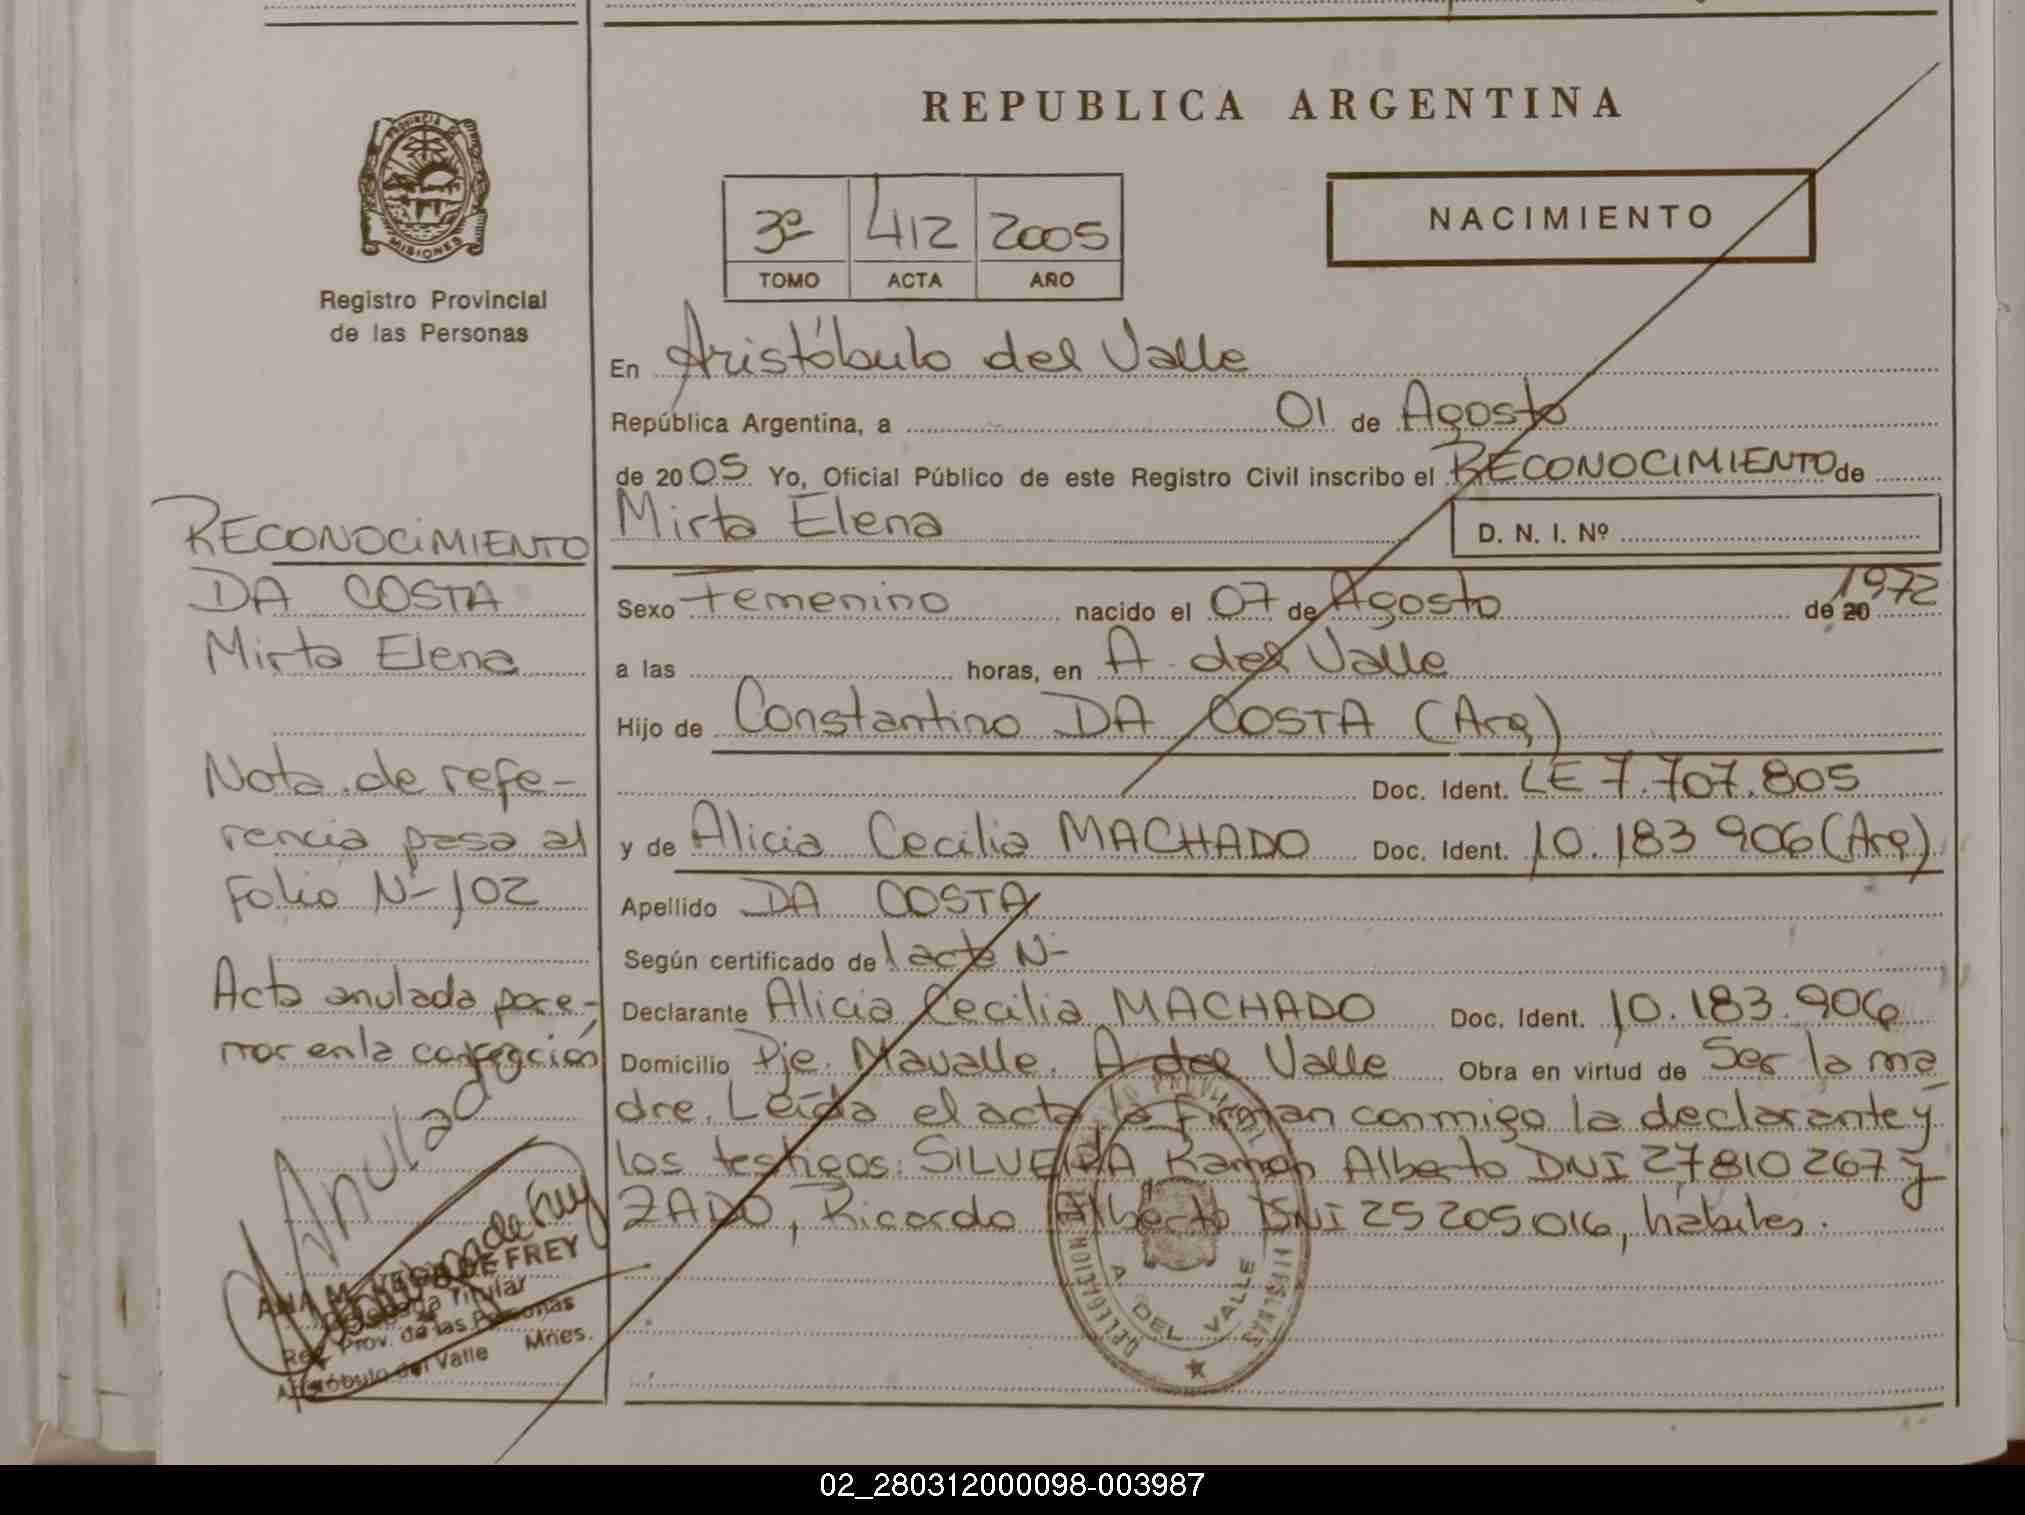 REPUBLICA ARGENTINA
PROVINCIA DE
MISIONES
Registro Provincial
de las Personas
3º 412 2005
TOMO ACTA AÑO
NACIMIENTO
En Aristóbulo del Valle
República Argentina, a 01 de Agosto
de 2005 Yo, Oficial Público de este Registro Civil inscribo el RECONOCIMIENTO de
Mirta Elena
D. N. I. Nº
Sexo Femenino nacido el 07 de Agosto de 20 1972
a las horas, en A. del Valle
Hijo de Constantino DA COSTA (Arg)
Doc. Ident. LE 7.707.805
y de Alicia Cecilia MACHADO Doc. Ident. 10.183 906 (Arg)
Apellido DA COSTA
Según certificado de acta N-
Declarante Alicia Cecilia MACHADO Doc. Ident. 10.183.906
Domicilio Pje. Mavalle. A del Valle Obra en virtud de Ser la ma
dre. Leída el acta la firman conmigo la declarante y
los testigos: SILVEIRA Ramón Alberto DNI 27810267 y
ZADO, Ricardo Alberto DNI 25205016, hábiles.
RECONOCIMIENTO
DA COSTA
Mirta Elena
Nota de refe-
rencia pasa al
Folio N- 102
Acta anulada por e-
rror en la confección
Anulado
ANA M. DE FREY
Delegada Titular
Reg. Prov. de las Personas
Aristóbulo del Valle Mnes.
DELEGACION
A. DEL VALLE
02_280312000098-003987